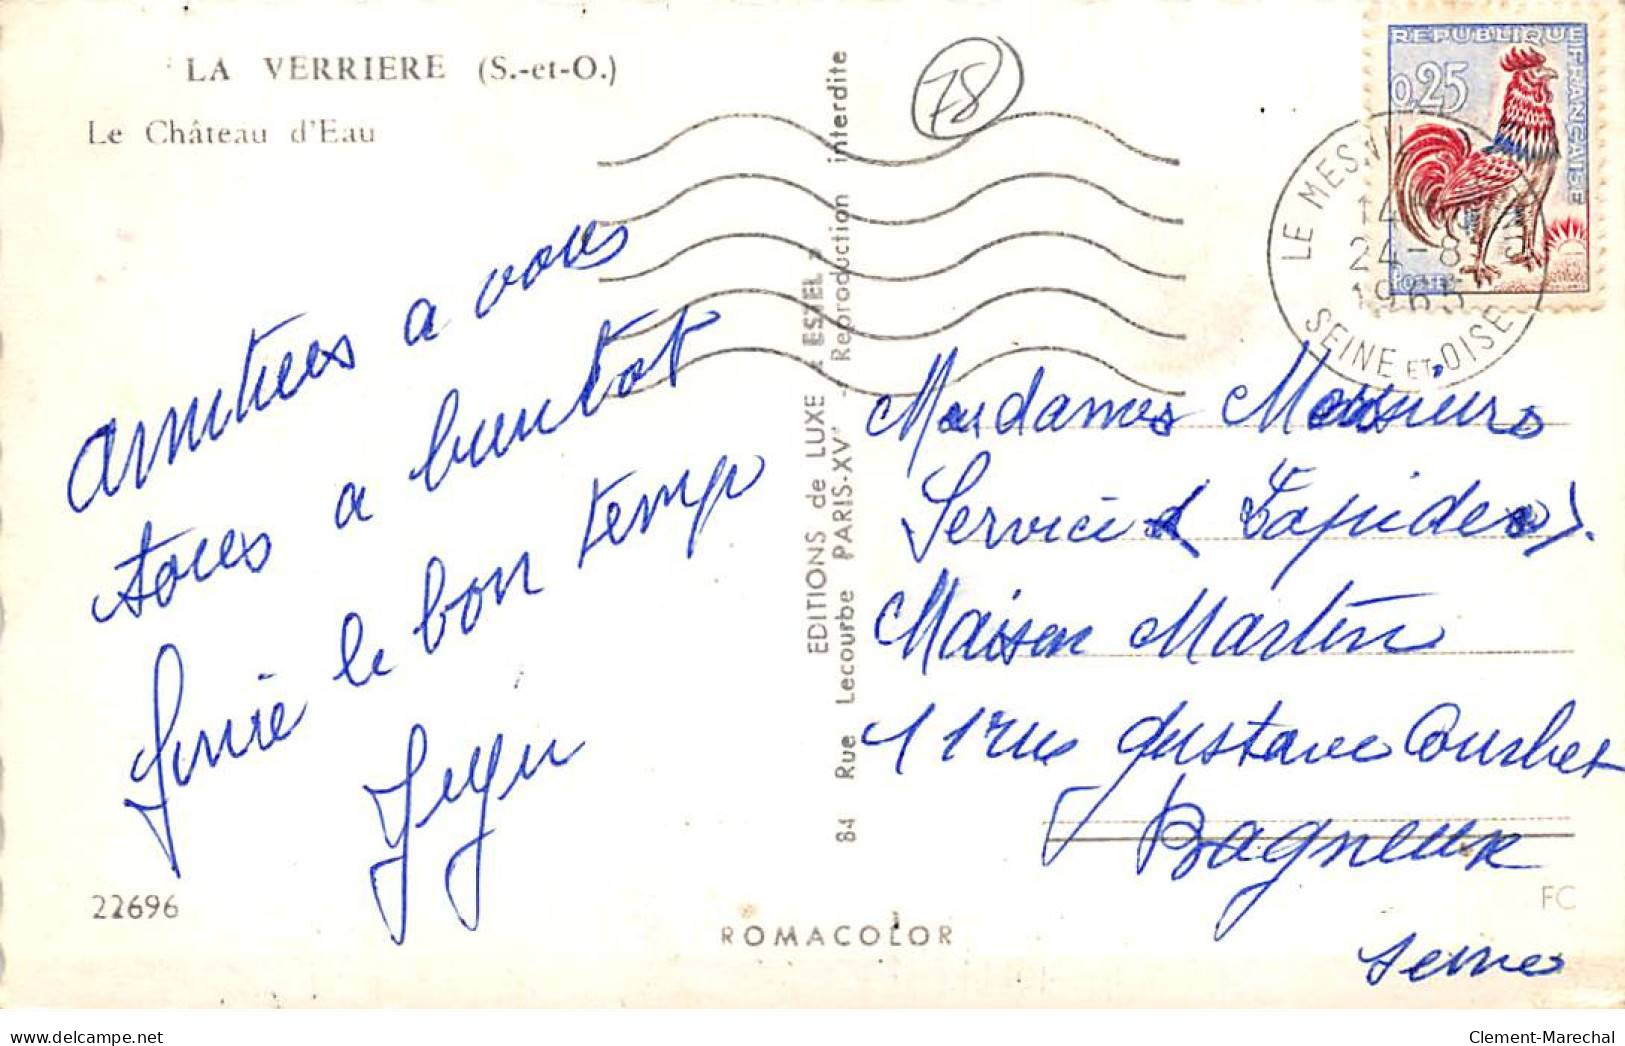 LA VERRIERE (S.-et-O.)
Le Château d'Eau
amitiees a vous
tous a bientot
le bon temp
22696
EDITIONS de LUXE « ESTEL »
84 Rue Lecourbe PARIS-XV° - Reproduction interdite
ROMACOLOR
78
REPUBLIQUE FRANÇAISE
0,25
POSTES
LE MESNIL
24-8
1965
SEINE ET OISE
Mesdames Messieurs
Service Lapider
Maison Martin
11 rue Gustave Courbet
Bagneux
Seine
FC
delcampe.net
Clement-Marechal